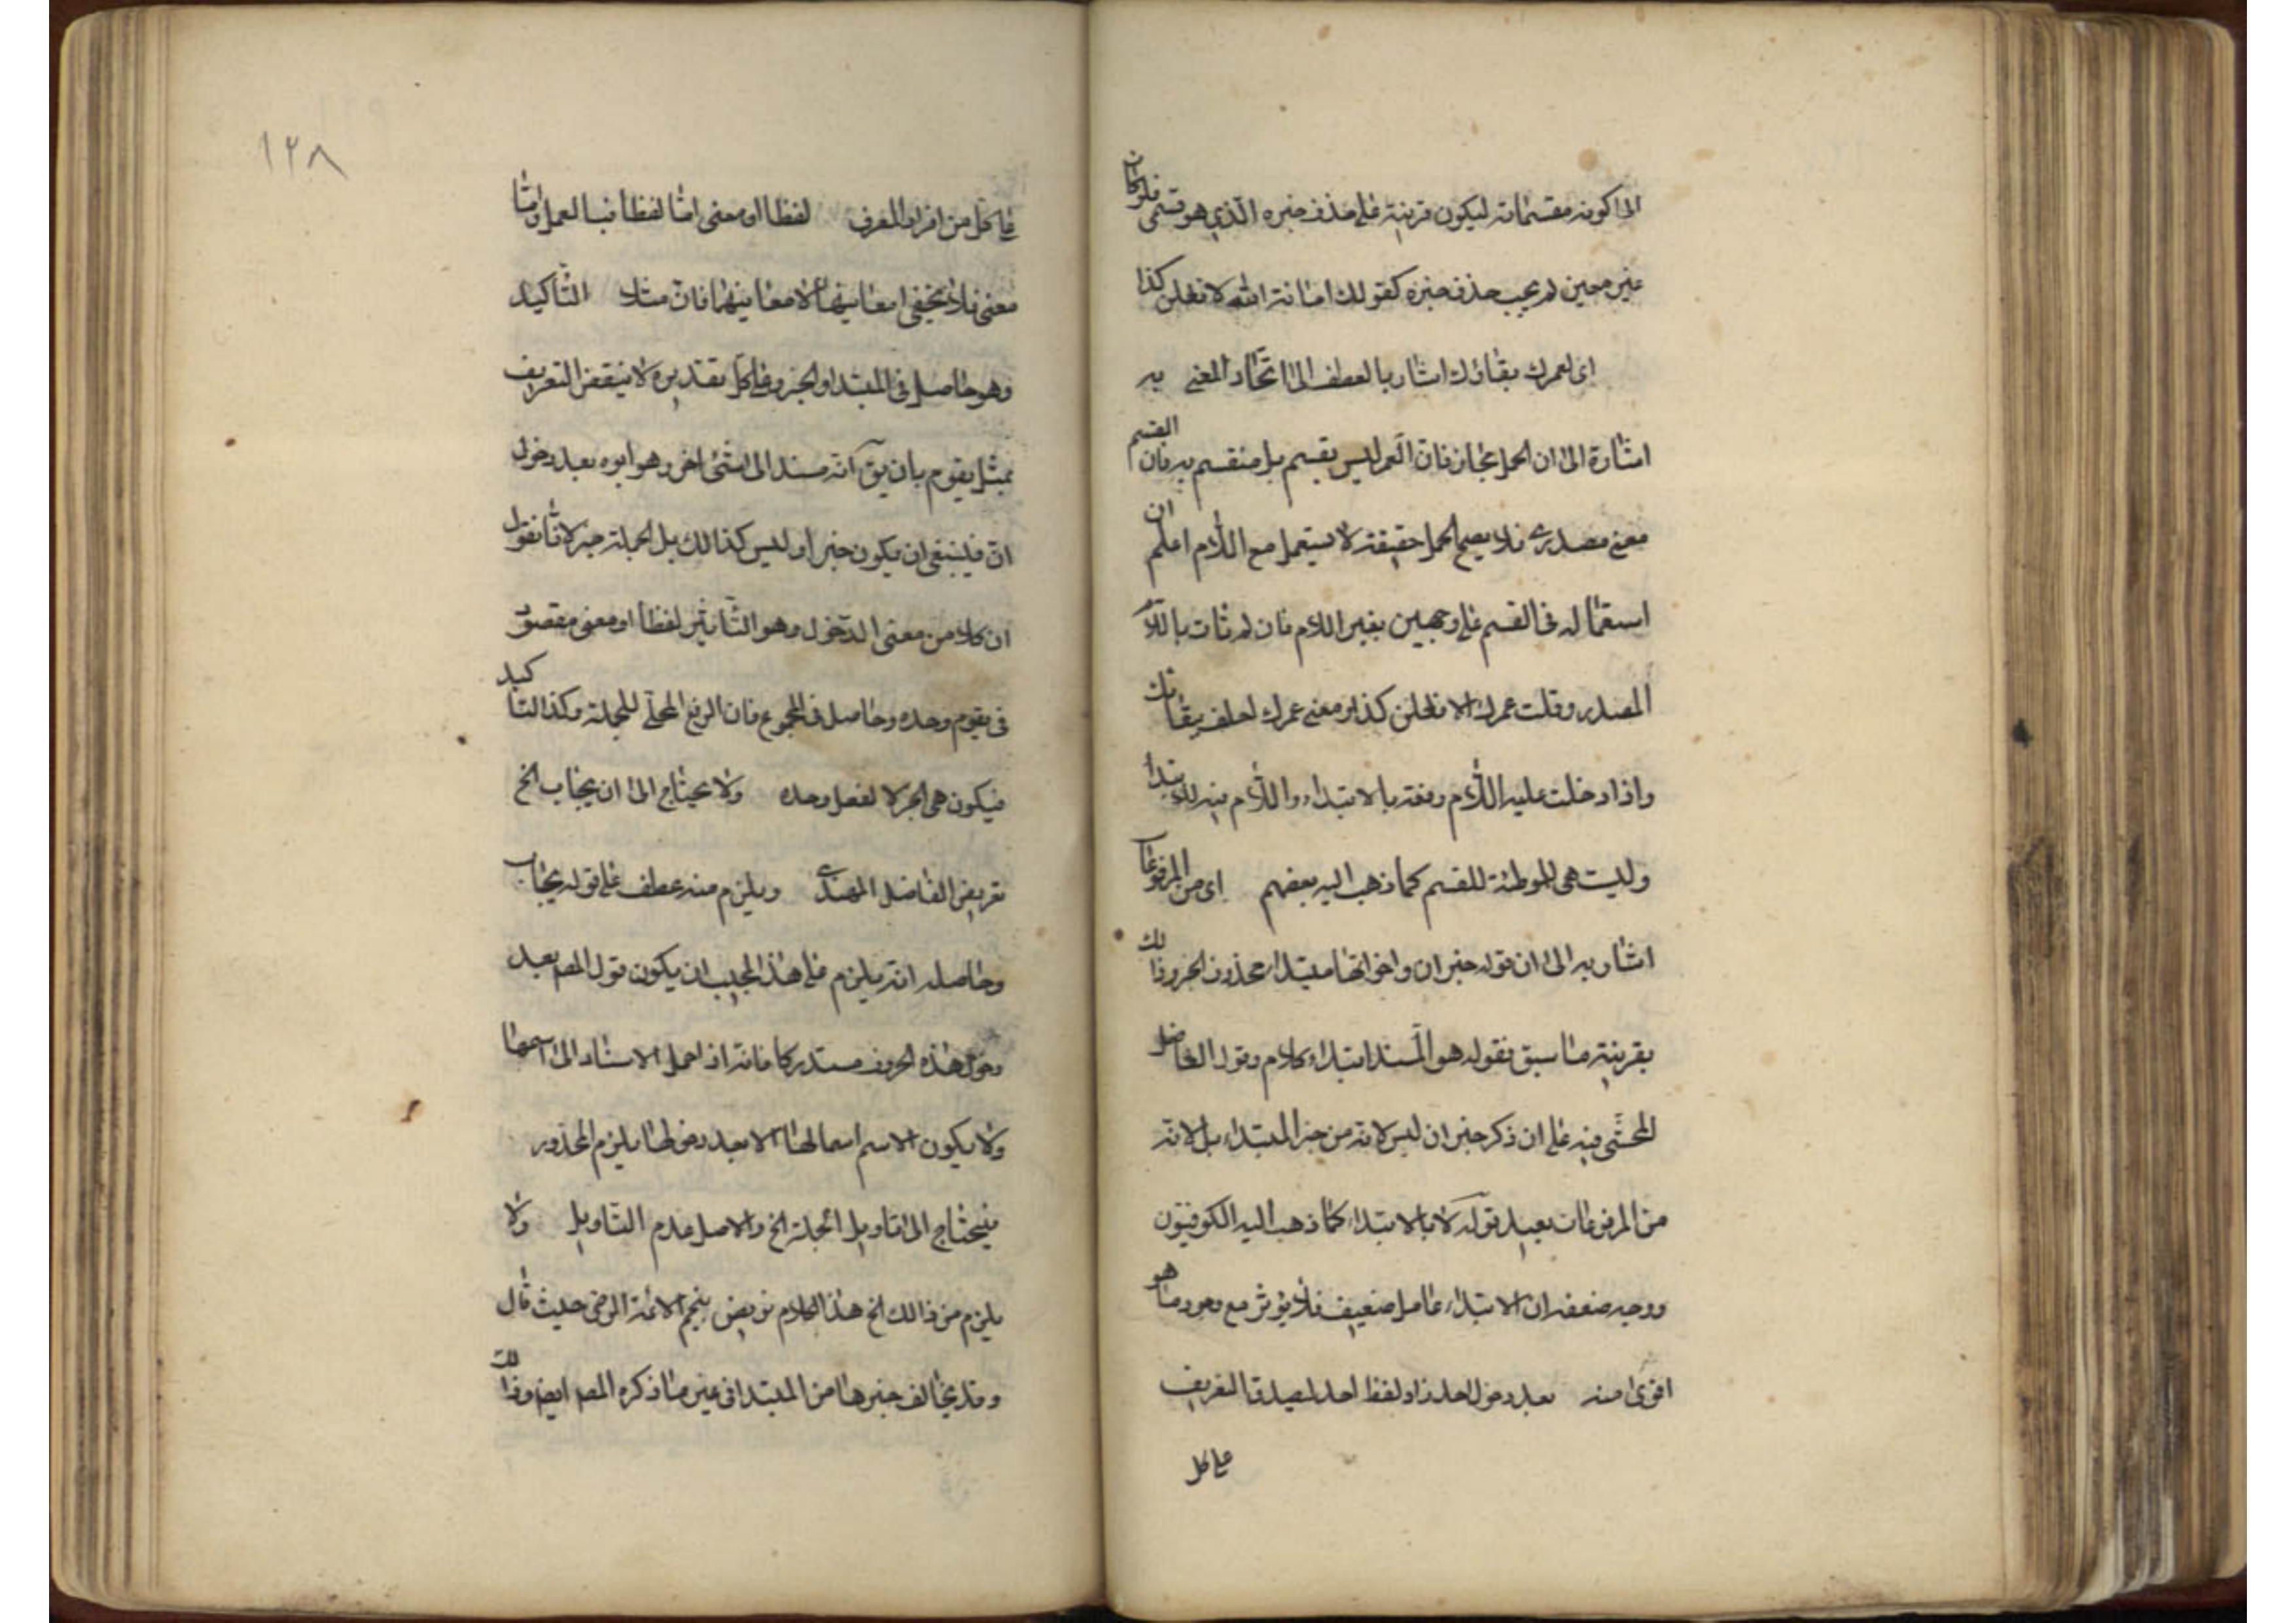 الى كونه مقسما به ليكون قرينة على حذف خبره الذي هو قسمى فلو كان
غير معين لم يجب حذف خبره كقولك امانة الله لافعلن كذا
اى لعمرك بقاؤك اشار بالعطف الى اتحاد المعنى به
اشارة الى ان الحمل مجاز فان العمر ليس بقسم بل منقسم به فان القسم
معنى مصدرى فلا يصح الحمل حقيقة لا يستعمل مع اللام اعلم ان
استعماله فى القسم على وجهين بغير اللام فان لم تات باللام
المصدر وقلت عمرك لافعلن كذا ومعنى عمرك احلف ببقائك
واذا دخلت عليه اللام رفعته بالابتداء واللام فيه للابتداء
وليست هى الموطئة للقسم كما ذهب اليه بعضهم اى من المرفوعات
اشار به الى ان قوله خبر ان واخواتها مبتداء محذوف الخبر وذلك
بقرينة ما سبق فقوله هو المسند ابتداء كلام وقول الفاضل
المحشى فيه على ان ذكر خبر ان ليس لانه من خبر المبتداء بل لانه
من المرفوعات بعيد قوله لا بالابتداء كما ذهب اليه الكوفيون
ووجه ضعفه ان الابتداء عامل ضعيف فلا يؤثر مع وجود ما هو
اقوى منه بعد دخول احد زاد لفظ احد ليصدق التعريف
على كل
١٢٨
على كل من افراد المعرف لفظا او معنى اما لفظا فبالعمل واما
معنى فلا يخفى امعانيها لا معانيهما فان مثلا التأكيد
وهو حاصل فى المبتدا والخبر وعلى كل تقديره لا ينتقض التعريف
بمثل يقوم بان يق انه مسند الى شئ اخر وهو ابوه بعد دخول
ان فينبغى ان يكون خبرا وليس كذالك بل الجملة خبر لانا نقول
ان كلا من معنى الدخول وهو التأثير لفظا او معنى مقصود
فى يقوم وحده وحاصل فى المجموع فان الرفع المحلى للجملة وكذا التاكيد
فيكون هى الخبر لا لفعل وحده ولا يحتاج الى ان يجاب الخ
تعريض الفاضل الهندى ويلزم منه عطف على قوله يجاب
وحاصله انه يلزم على هذا المجيب ان يكون قول المصـ بعد
دخول هذه الحروف مستدركا فانه اذ احمل الاسناد الى اسمها
ولا يكون الاسم اسما لها الا بعد دخولها يلزم المحذور
فيحتاج الى تاويل الجملة الخ والاصل عدم التاويل ولا
يلزم من ذالك الخ هذا الكلام تعريض بنجم الائمة الرضى حيث قال
وقد يخالف خبرها من المبتدا فى غير ما ذكره المصـ ايضا وذلك